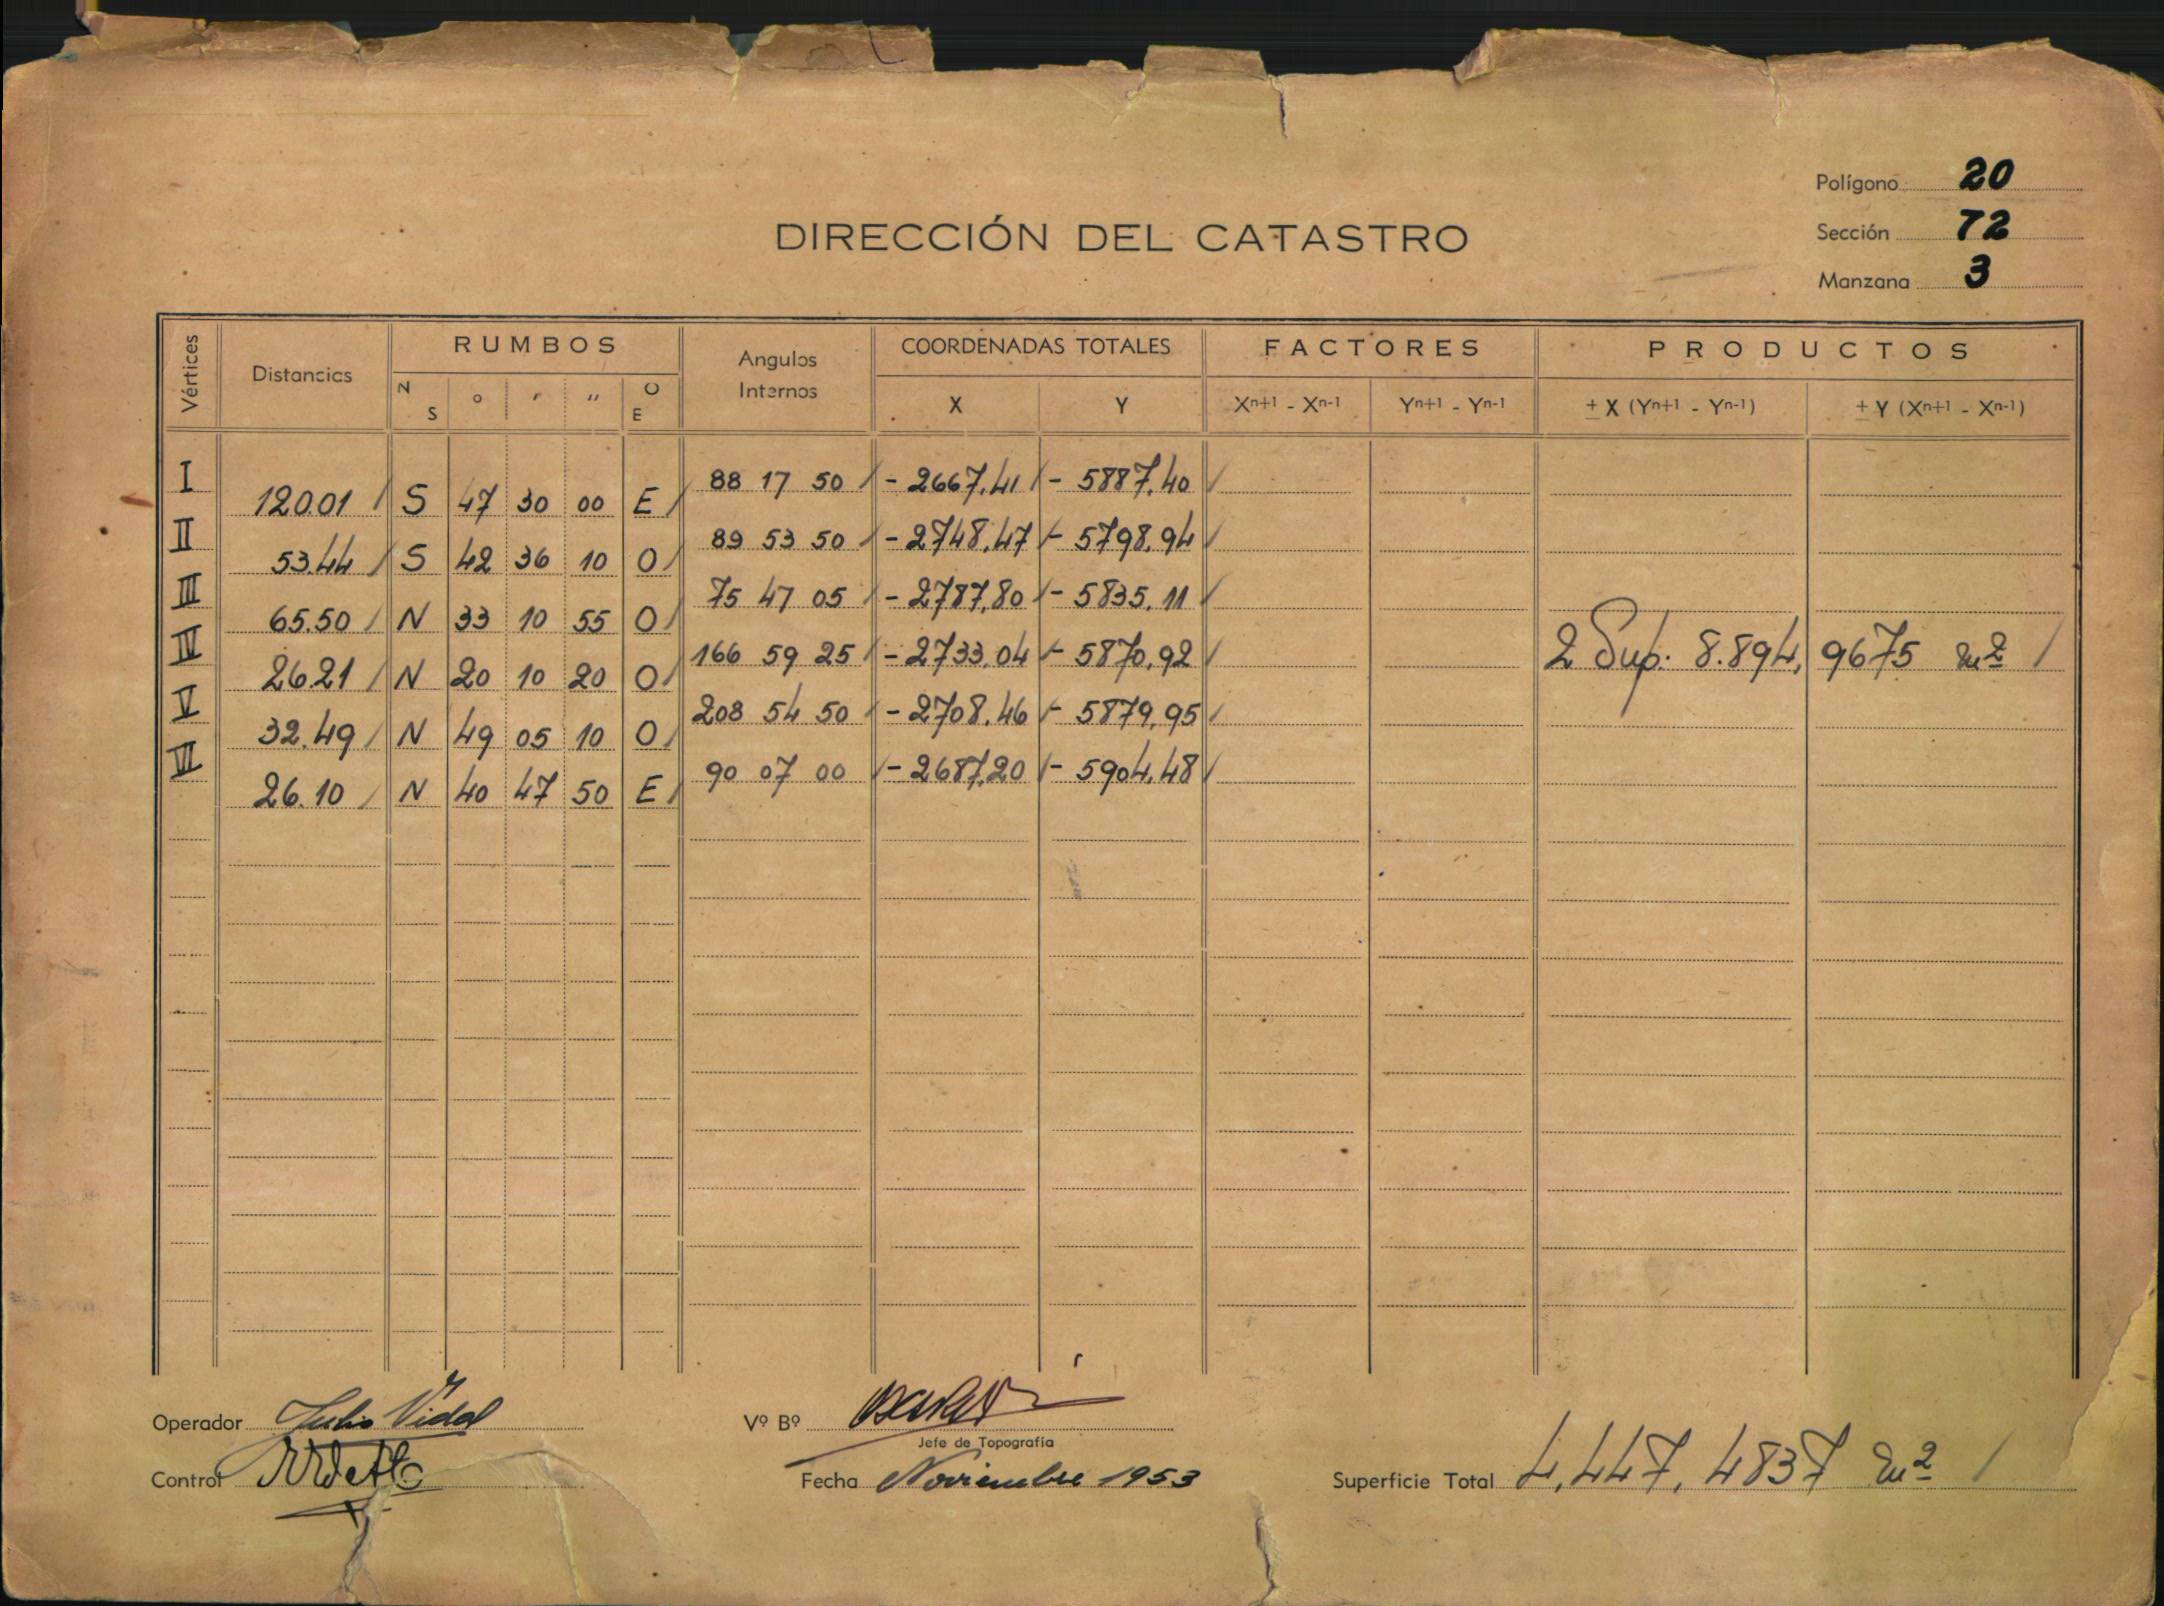 Polígono 20
Sección 72
Manzana 3
DIRECCIÓN DEL CATASTRO
Vértices Distancias RUMBOS Angulos Internos COORDENADAS TOTALES FACTORES PRODUCTOS
N S ° ' '' O E X Y Xn+1 - Xn-1 Yn+1 - Yn-1 ± X (Yn+1 - Yn-1) ± Y (Xn+1 - Xn-1)
I 88 17 50 - 2667,41 - 5887,40
120.01 S 47 30 00 E
II 89 53 50 - 2748,47 - 5798,94
53.44 S 42 36 10 O
III 75 47 05 - 2787,80 - 5835,11
65.50 N 33 10 55 O
IV 166 59 25 - 2733,04 - 5870,92 2 Sup. 8.894,9675 m2
26.21 N 20 10 20 O
V 208 54 50 - 2708,46 - 5879,95
32.49 N 49 05 10 O
VI 90 07 00 - 2687,20 - 5904,48
26.10 N 40 47 50 E
Operador Julio Vidal Vº Bº
Jefe de Topografía
Control Fecha Noviembre 1953 Superficie Total 4,447,4837 m2